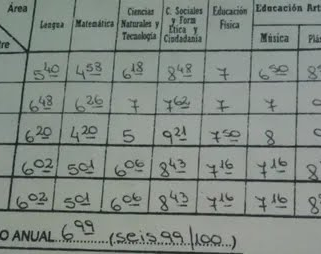 Area Lengua Matemática Ciencias Naturales y Tecnología C. Sociales y Form Etica y Ciudadanía Educación Física Educación Art
Música Plás
tre
5 40 4 58 6 18 8 48 7 6 50 8
6 48 6 26 7 7 62 7 7
6 20 4 20 5 9 21 7 50 8
6 02 5 01 6 06 8 43 7 16 7 16 8
6 02 5 01 6 06 8 43 7 16 7 16 8
O ANUAL 6 99 (seis 99/100)